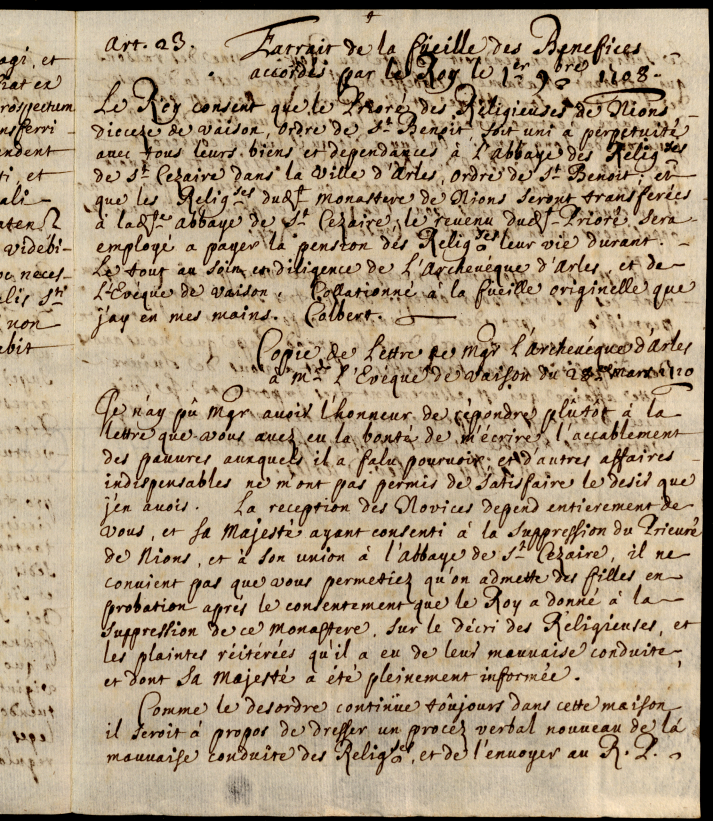 agi, et
hat ex
rospectum
nsferri
endent
ti, et
ali
videbi-
neces-
elis Sti
non
ebit
Art. 23. Extrait de la füeille des Benefices
accordés par le Roy le 1er 9bre 1708
Le Roy consent que le Prioré des Religieuses de Nions
dioceze de vaison, ordre de St Benoit soit uni à perpetuité
avec tous leurs biens et dependances à l'abbaye des Religses
de St Cezaire dans la ville d'Arles, ordre de St Benoit. et
que les Religses dudt monastere de Nions seront transferées
à ladte abbaye de St Cezaire, le revenu dudt Prioré sera
employé a payer la pension des Religses leur vie durant.
Le tout au soin et diligence de l'Archevéque d'Arles, et de
L'Evéque de vaison. Collationné à la füeille originelle que
j'ay en mes mains. Colbert.
Copie de Lettre de Mgr l'Archevéque d'Arles
à Mr L'Evéque de vaison du 28e mars 1710
Je n'ay pû Mgr avoir l'honneur de répondre plûtot à la
lettre que vous avez eu la bonté de m'écrire, l'accablement
des pauvres auxquels il a falu pourvoir, et d'autres affaires
indispensables ne m'ont pas permis de satisfaire le desir que
j'en avois. La reception des Novices depend entierement de
vous, et sa Majesté ayant consenti à la suppression du Prieuré
de Nions, et à son union à l'abbaye de St Cezaire, il ne
convient pas que vous permetiez qu'on admette des filles en
probation aprés le consentement que le Roy a donné à la
suppression de ce monastere, sur le décri des Religieuses, et
les plaintes réitérées qu'il a eu de leur mauvaise conduite
et dont sa Majesté a été pleinement informée.
Comme le desordre continüe toûjours dans cette maison
il seroit à propos de dresser un procez verbal nouveau de la
mauvaise conduite des Religses, et de l'envoyer au R. P.